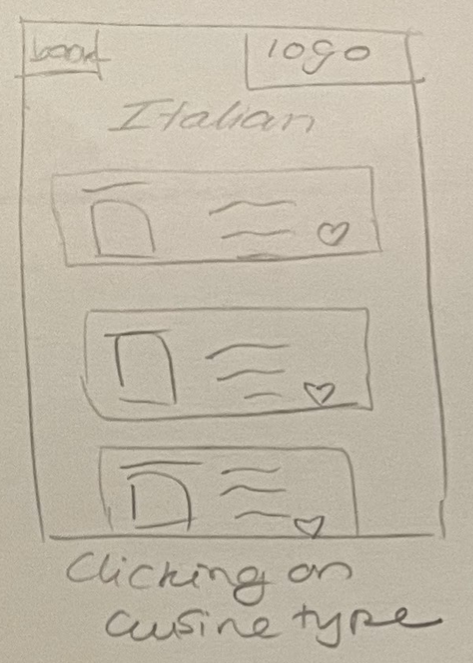 logo
Italian
Clicking on
cusine type